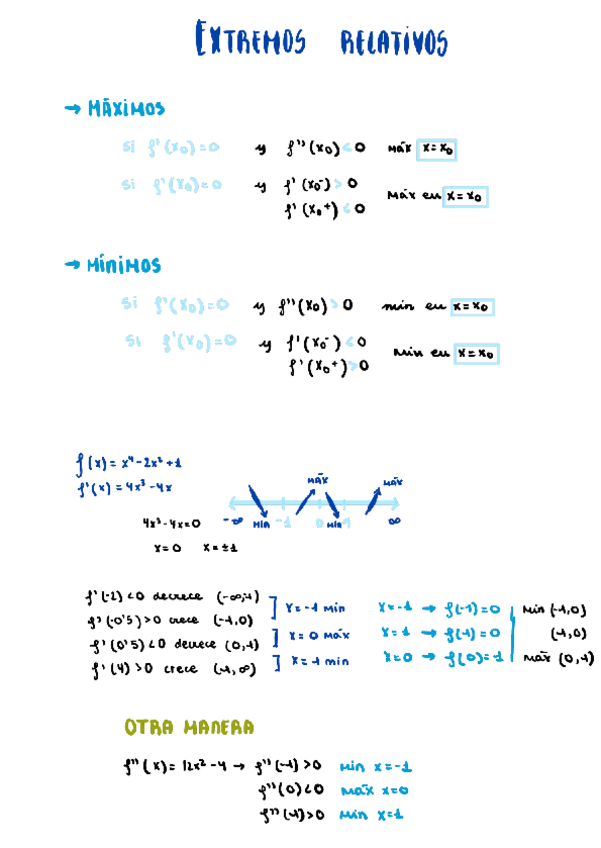 EXTREMOS RELATIVOS
→ MÁXIMOS
Si f'(x₀)=0 y f''(x₀)<0 máx x=x₀
Si f'(x₀)=0 y f'(x₀⁻)>0
f'(x₀⁺)<0 Máx en x=x₀
→ MÍNIMOS
Si f'(x₀)=0 y f''(x₀)>0 min en x=x₀
Si f'(x₀)=0 y f'(x₀⁻)<0
f'(x₀⁺)>0 Min en x=x₀
f(x)=x⁴-2x²+1
f'(x)=4x³-4x
MÁX MÁX
4x³-4x=0 -∞ MIN -1 0 MIN 1 ∞
x=0 x=±1
f'(-2)<0 decrece (-∞,-1)
f'(-0'5)>0 crece (-1,0)
f'(0'5)<0 decrece (0,1)
f'(4)>0 crece (1,∞)
x=-1 min
x=0 máx
x=1 min
x=-1 → f(-1)=0
x=1 → f(1)=0
x=0 → f(0)=1
Min (-1,0)
(1,0)
máx (0,1)
OTRA MANERA
f''(x)=12x²-4 → f''(-1)>0 Min x=-1
f''(0)<0 MÁX x=0
f''(1)>0 Min x=1